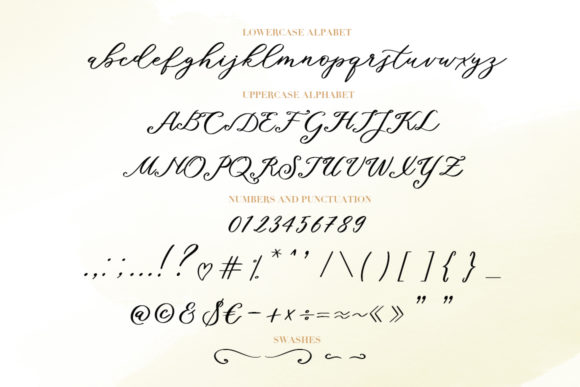 LOWERCASE ALPABET
abcdefghijklmnopqrstuvwxyz
UPPERCASE ALPHABET
ABCDEFGHIJKL
MNOPQRSTUVWXYZ
NUMBERS AND PUNCTUATION
0123456789
.,:;...!?♡#%*^'/\()[]{}_
@©&$€-+x÷=≈~《》""
SWASHES